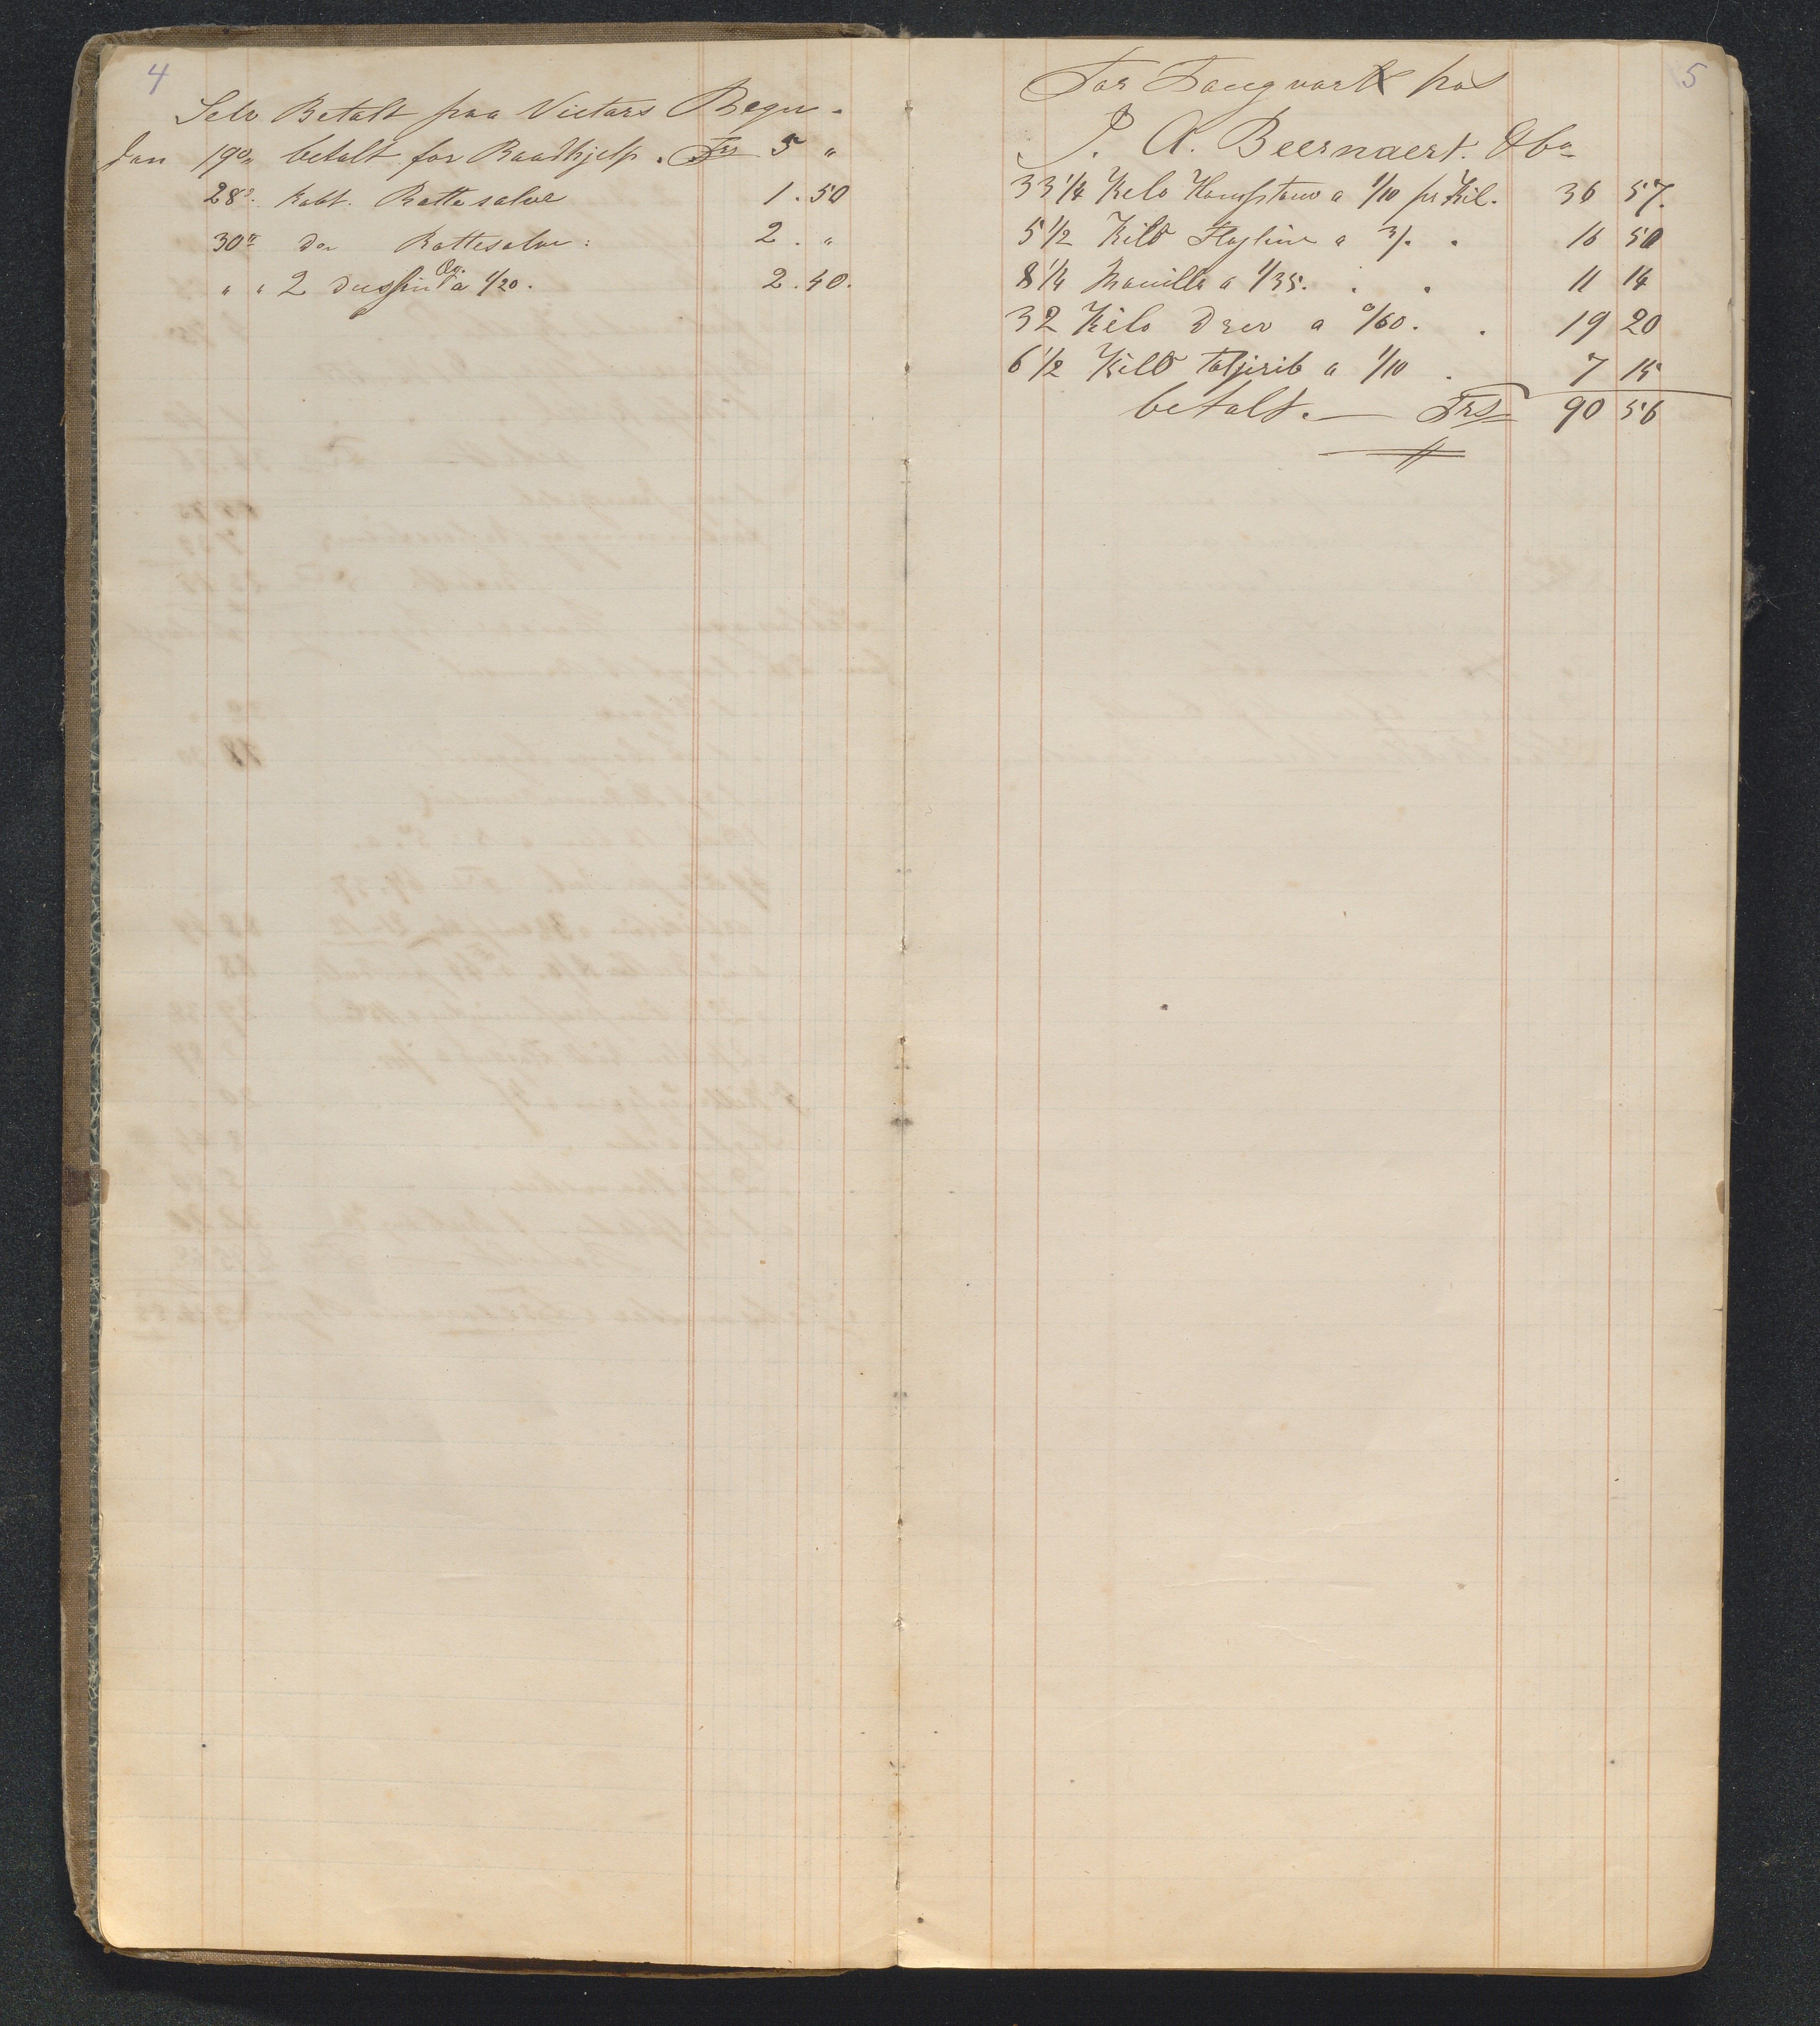 4
Selv Betalt paa Victors Regn.
Jan 19de betalt for Baadhjelp. Frs 5 "
28de Kobt. Rottesalve 1.50
30te do Rottesalve: 2. "
" " 2 Dussin a 1/20. 2.40.
5
For Tougværk hos
P. A. Beernaert. Obo
33 1/4 Kilo Hampetouv a 1/10 pr Kil. 36 57.
5 1/2 Kilo Flagline a 3/. . 16 50
8 1/4 Manilla a 1/35. . . 11 14
32 Kilo Drev a 0/60. . 19 20
6 1/2 Kilo Taljerib a 1/10 . 7 15
betalt. — Frs 90 56